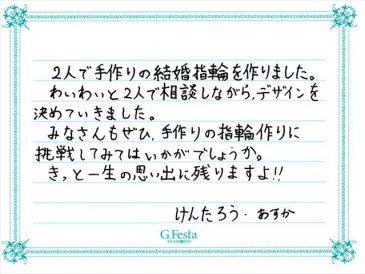 2人で手作りの結婚指輪を作りました。
わいわいと2人で相談しながら,デザインを
決めていきました。
みなさんもぜひ,手作りの指輪作りに
挑戦してみてはいかがでしょうか。
きっと一生の思い出に残りますよ!!
けんたろう・あすか
G.Festa
DIAMOND